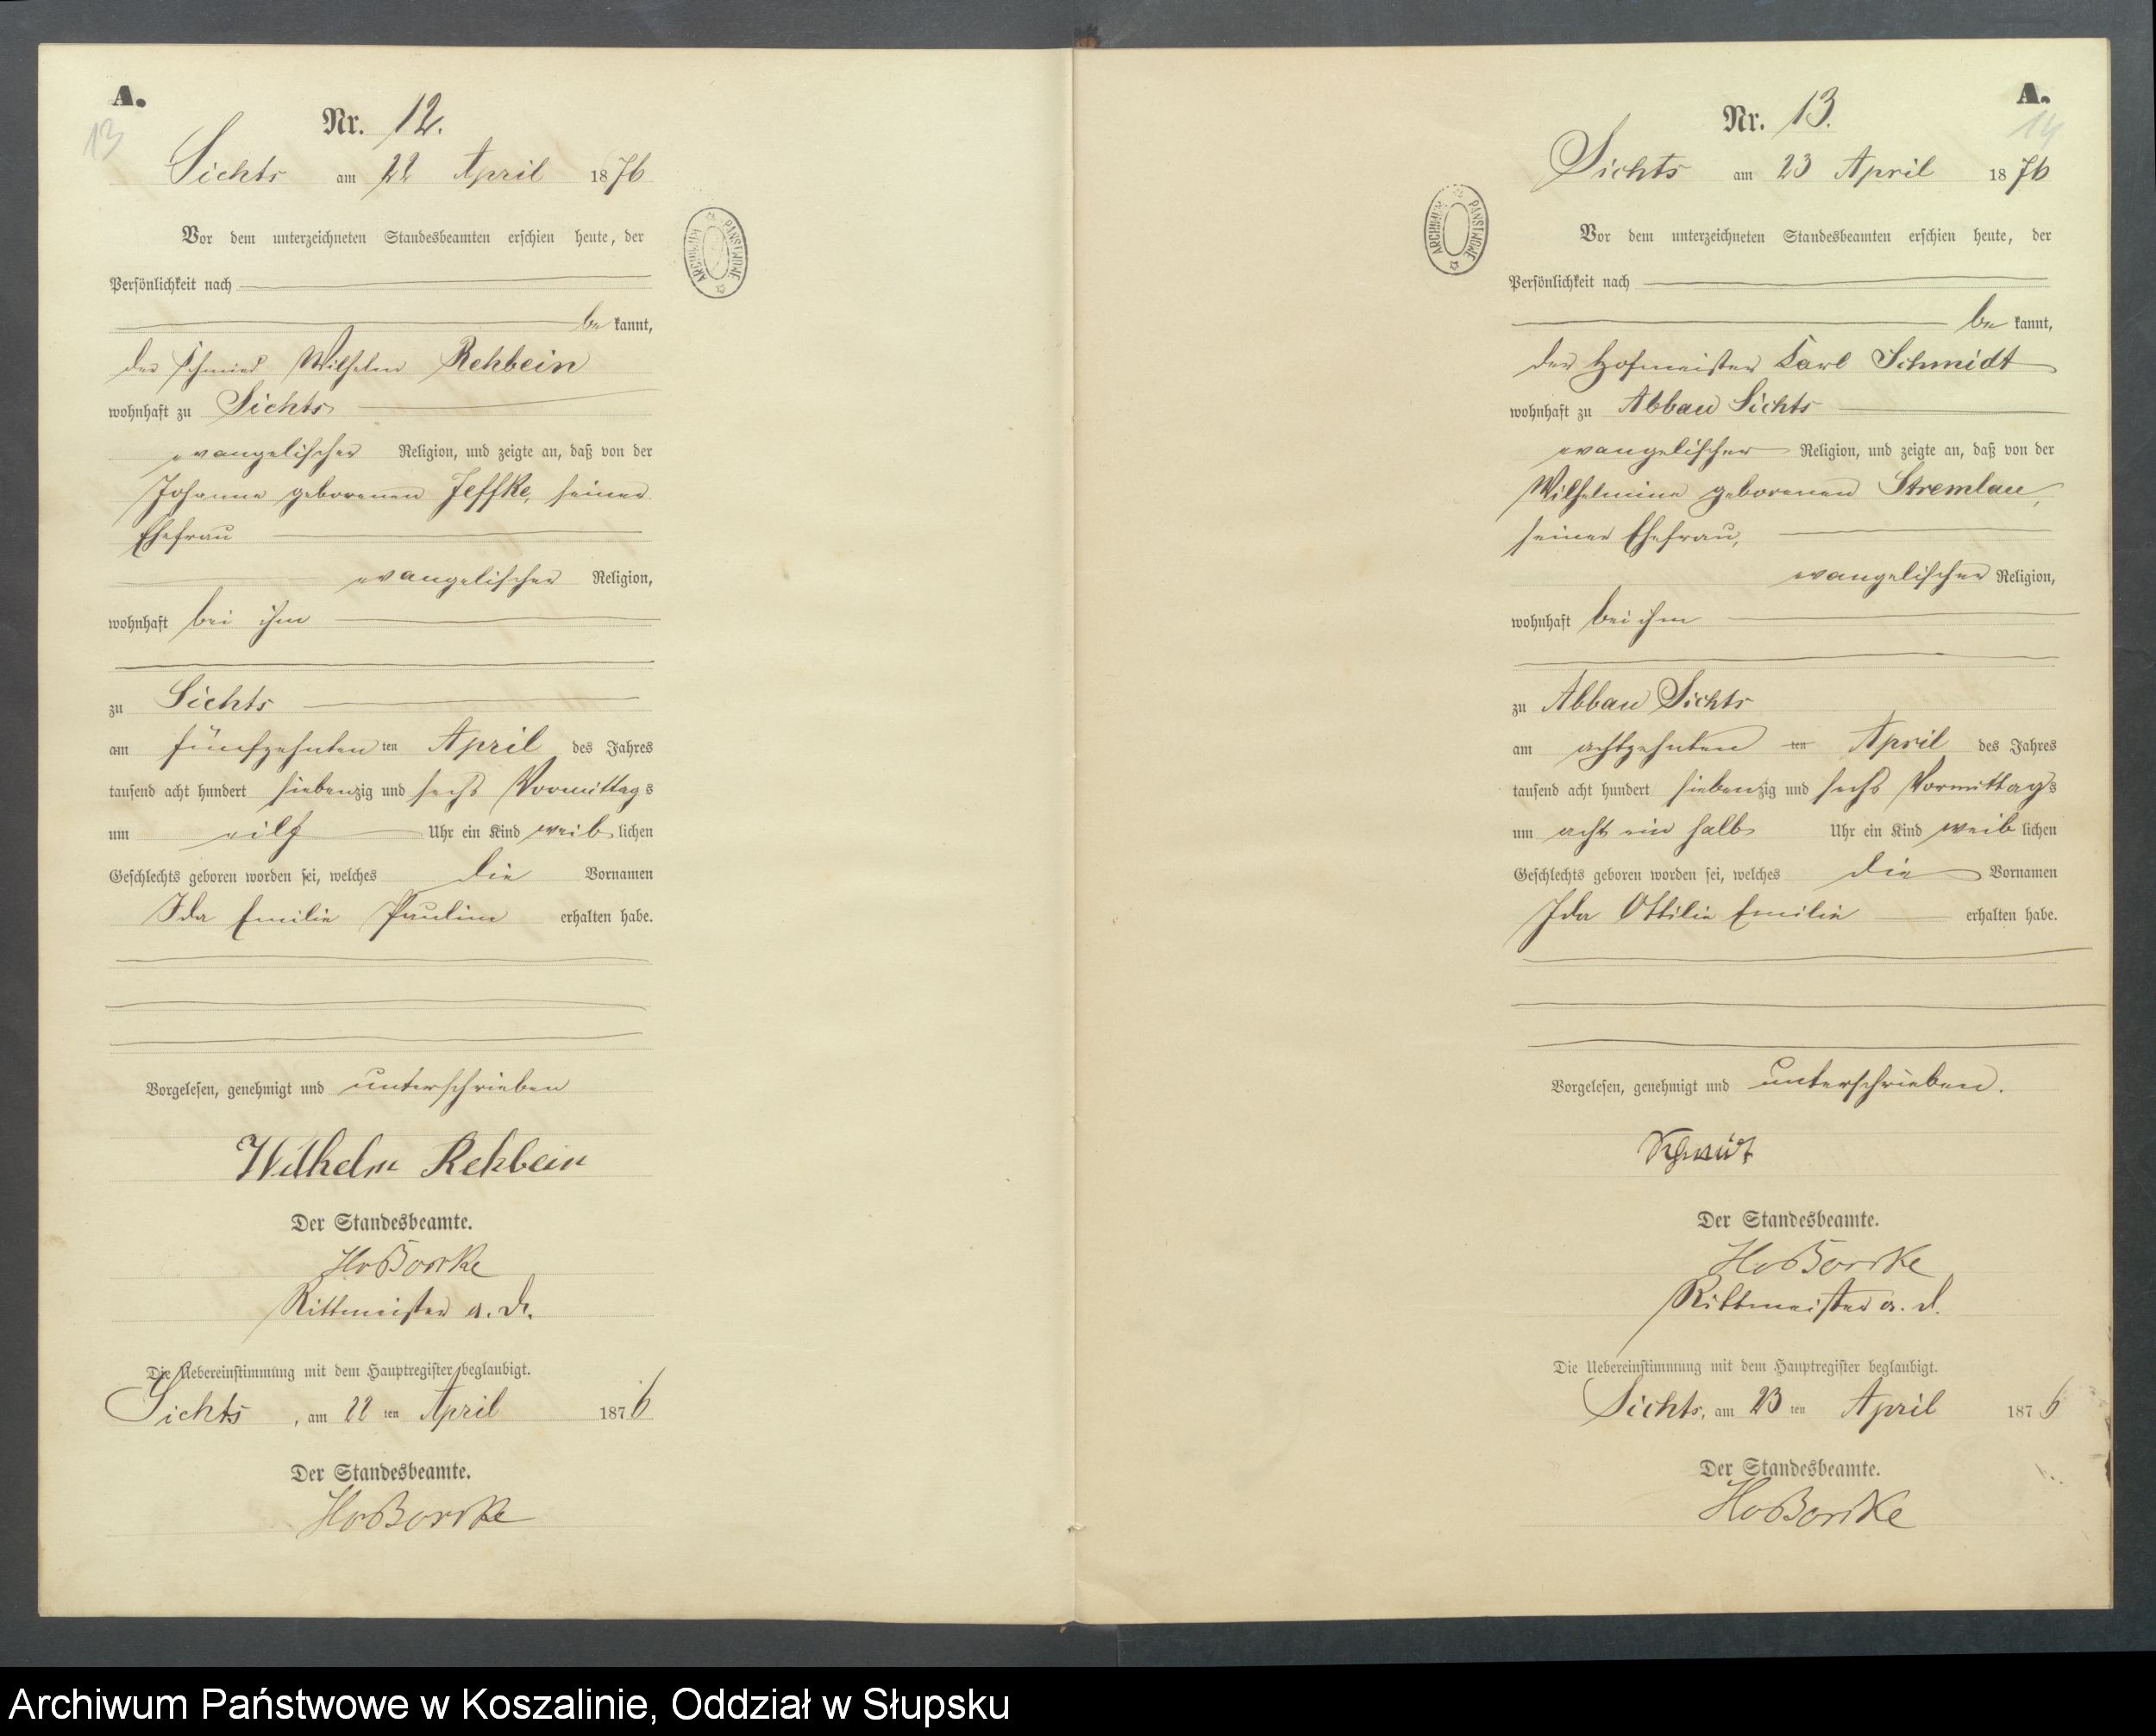 A.
13
Nr. 12.
Sichts am 22 April 1876
Vor dem unterzeichneten Standesbeamten erschien heute, der
Persönlichkeit nach
be kannt,
der Schmied Wilhelm Rehbein
wohnhaft zu Sichts
evangelischer Religion, und zeigte an, daß von der
Johanne geborenen Jeffke, seiner
Ehefrau
evangelischer Religion,
wohnhaft bei ihm
zu Sichts
am fünfzehnten ten April des Jahres
tausend acht hundert siebenzig und sechs Vormittags
um eilf Uhr ein Kind weib lichen
Geschlechts geboren worden sei, welches die Vornamen
Ida Emilie Pauline erhalten habe.
Vorgelesen, genehmigt und unterschrieben
Wilhelm Rehbein
Der Standesbeamte.
HvBorcke
Rittmeister a. D.
Die Uebereinstimmung mit dem Hauptregister beglaubigt.
Sichts, am 22 ten April 1876
Der Standesbeamte.
HvBorcke
ARCHIWUM PAŃSTWOWE
A.
14
Nr. 13.
Sichts am 23 April 1876
Vor dem unterzeichneten Standesbeamten erschien heute, der
Persönlichkeit nach
be kannt,
der Hofmeister Karl Schmidt
wohnhaft zu Abbau Sichts
evangelischer Religion, und zeigte an, daß von der
Wilhelmine geborenen Stremlau,
seiner Ehefrau,
evangelischer Religion,
wohnhaft bei ihm
zu Abbau Sichts
am achtzehnten ten April des Jahres
tausend acht hundert siebenzig und sechs Vormittags
um acht ein halb Uhr ein Kind weib lichen
Geschlechts geboren worden sei, welches die Vornamen
Ida Ottilie Emilie erhalten habe.
Vorgelesen, genehmigt und unterschrieben.
Schmidt
Der Standesbeamte.
HvBorcke
Rittmeister a. D.
Die Uebereinstimmung mit dem Hauptregister beglaubigt.
Sichts, am 23 ten April 1876
Der Standesbeamte.
HvBorcke
ARCHIWUM PAŃSTWOWE
Archiwum Państwowe w Koszalinie, Oddział w Słupsku